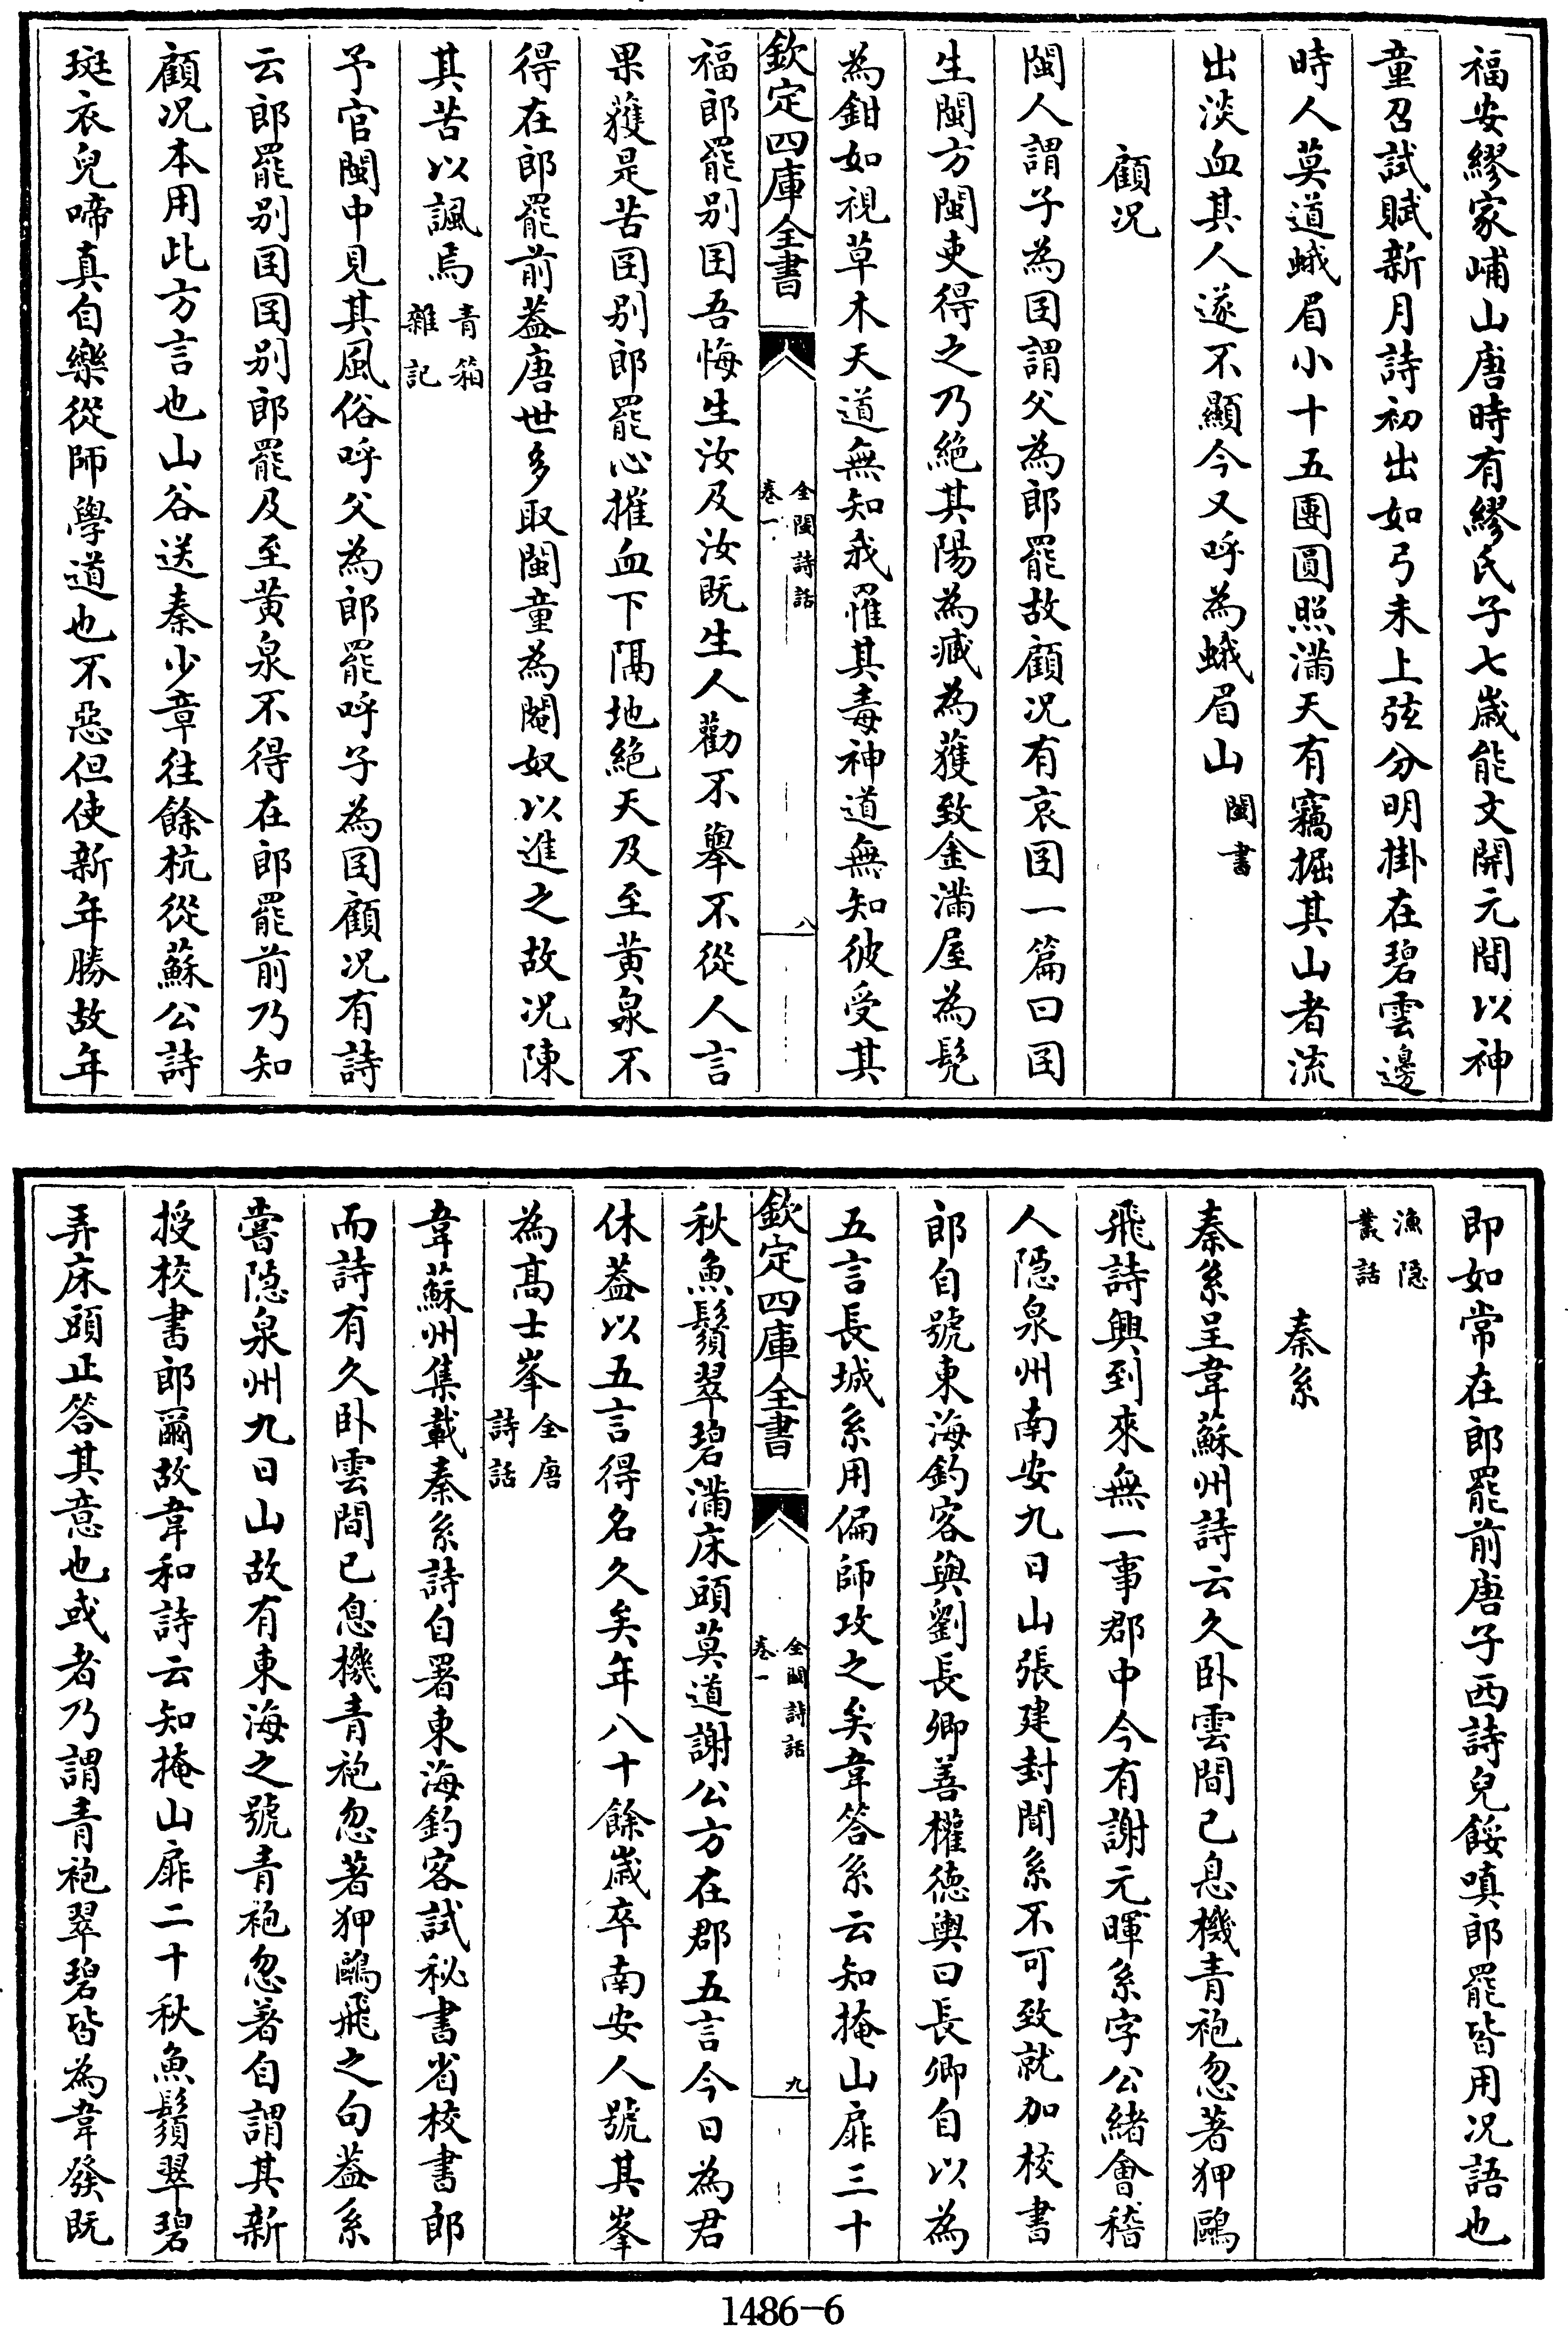 福安繆家峬山唐時有繆氏子七歲能文開元間以神
童召試賦新月詩初出如弓未上弦分明掛在碧雲邊
時人莫道蛾眉小十五團圓照滿天有竊掘其山者流
出淡血其人遂不顯今又呼為蛾眉山閩書
顧况
閩人謂子為囝謂父為郎罷故顧况有哀囝一篇曰囝
生閩方閩吏得之乃絶其陽為臧為獲致金滿屋為髠
為鉗如視草木天道無知我罹其毒神道無知彼受其
欽定四庫全書
全閩詩話
卷一
八
福郎罷别囝吾悔生汝及汝既生人勸不舉不從人言
果獲是苦囝别郎罷心摧血下隔地絶天及至黄泉不
得在郎罷前葢唐世多取閩童為閹奴以進之故况陳
其苦以諷焉青箱雜記
予官閩中見其風俗呼父為郎罷呼子為囝顧况有詩
云郎罷别囝囝别郎罷及至黄泉不得在郎罷前乃知
顧况本用此方言也山谷送秦少章往餘杭從蘇公詩
斑衣兒啼真自樂從師學道也不惡但使新年勝故年
即如常在郎罷前唐子西詩兒餒嗔郎罷皆用况語也
漁隱叢話
秦系
秦系呈韋蘇州詩云久卧雲間已息機青袍忽著狎鷗
飛詩興到來無一事郡中今有謝元暉系字公緒會稽
人隱泉州南安九日山張建封聞系不可致就加校書
郎自號東海釣客與劉長卿善權德輿曰長卿自以為
五言長城系用偏師攻之矣韋答系云知掩山扉三十
欽定四庫全書
全閩詩話
卷一
九
秋魚鬚翠碧滿床頭莫道謝公方在郡五言今日為君
休葢以五言得名久矣年八十餘歲卒南安人號其峯
為髙士峯全唐詩話
韋蘇州集載秦系詩自署東海釣客試秘書省校書郎
而詩有久卧雲間已息機青袍忽著狎鷗飛之句葢系
嘗隱泉州九日山故有東海之號青袍忽著自謂其新
授校書郎爾故韋和詩云知掩山扉二十秋魚鬚翠碧
弄床頭止答其意也或者乃謂青袍翠碧皆為韋發既
1486-6